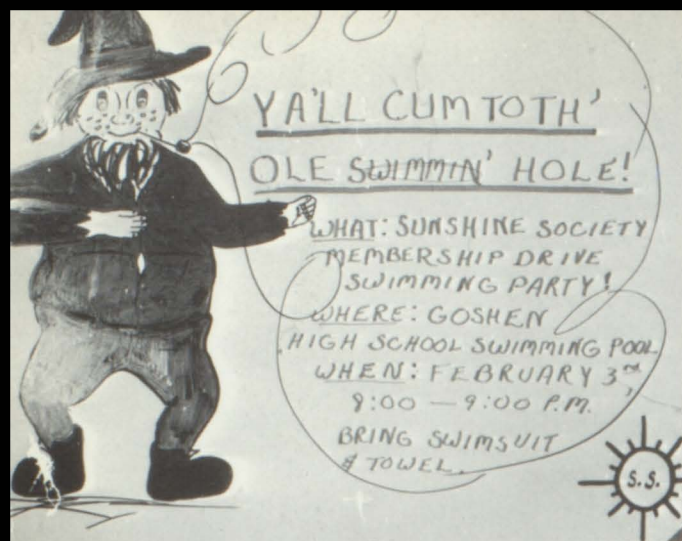 YA'LL CUM TO TH'
OLE SWIMMIN' HOLE!
WHAT: SUNSHINE SOCIETY
MEMBERSHIP DRIVE
SWIMMING PARTY!
WHERE: GOSHEN
HIGH SCHOOL SWIMMING POOL
WHEN: FEBRUARY 3rd,
8:00 — 9:00 P.M.
BRING SWIMSUIT
& TOWEL.
S.S.